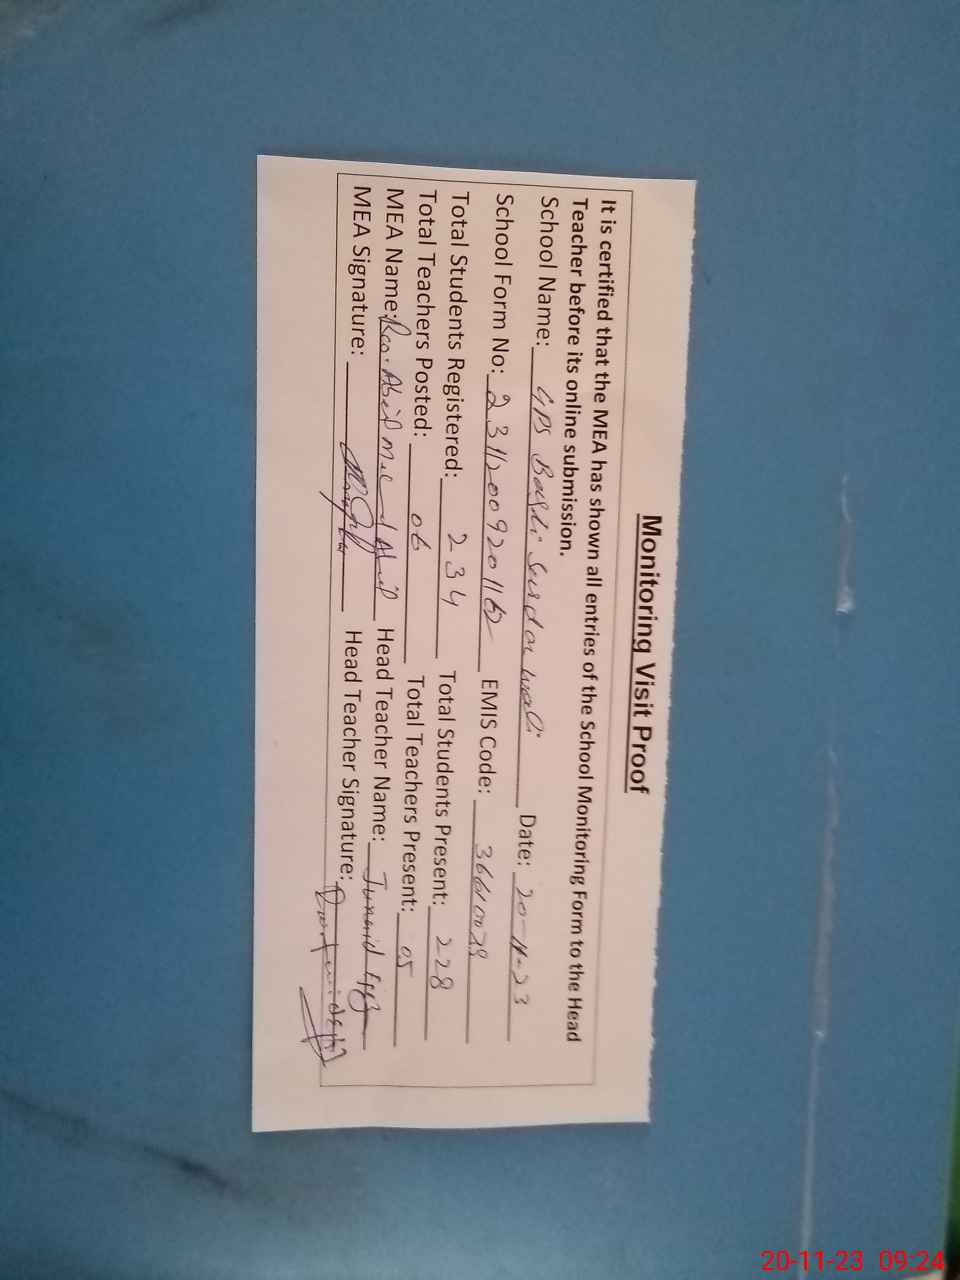 Monitoring Visit Proof
It is certified that the MEA has shown all entries of the School Monitoring Form to the Head
Teacher before its online submission.
School Name: GPS Basti Sardar wali Date: 20-11-23
School Form No: EMIS Code:
Total Students Registered: 234 Total Students Present: 228
Total Teachers Posted: 06 Total Teachers Present: 05
MEA Name: Head Teacher Name: Junaid
MEA Signature: Head Teacher Signature:
20-11-23 09:24